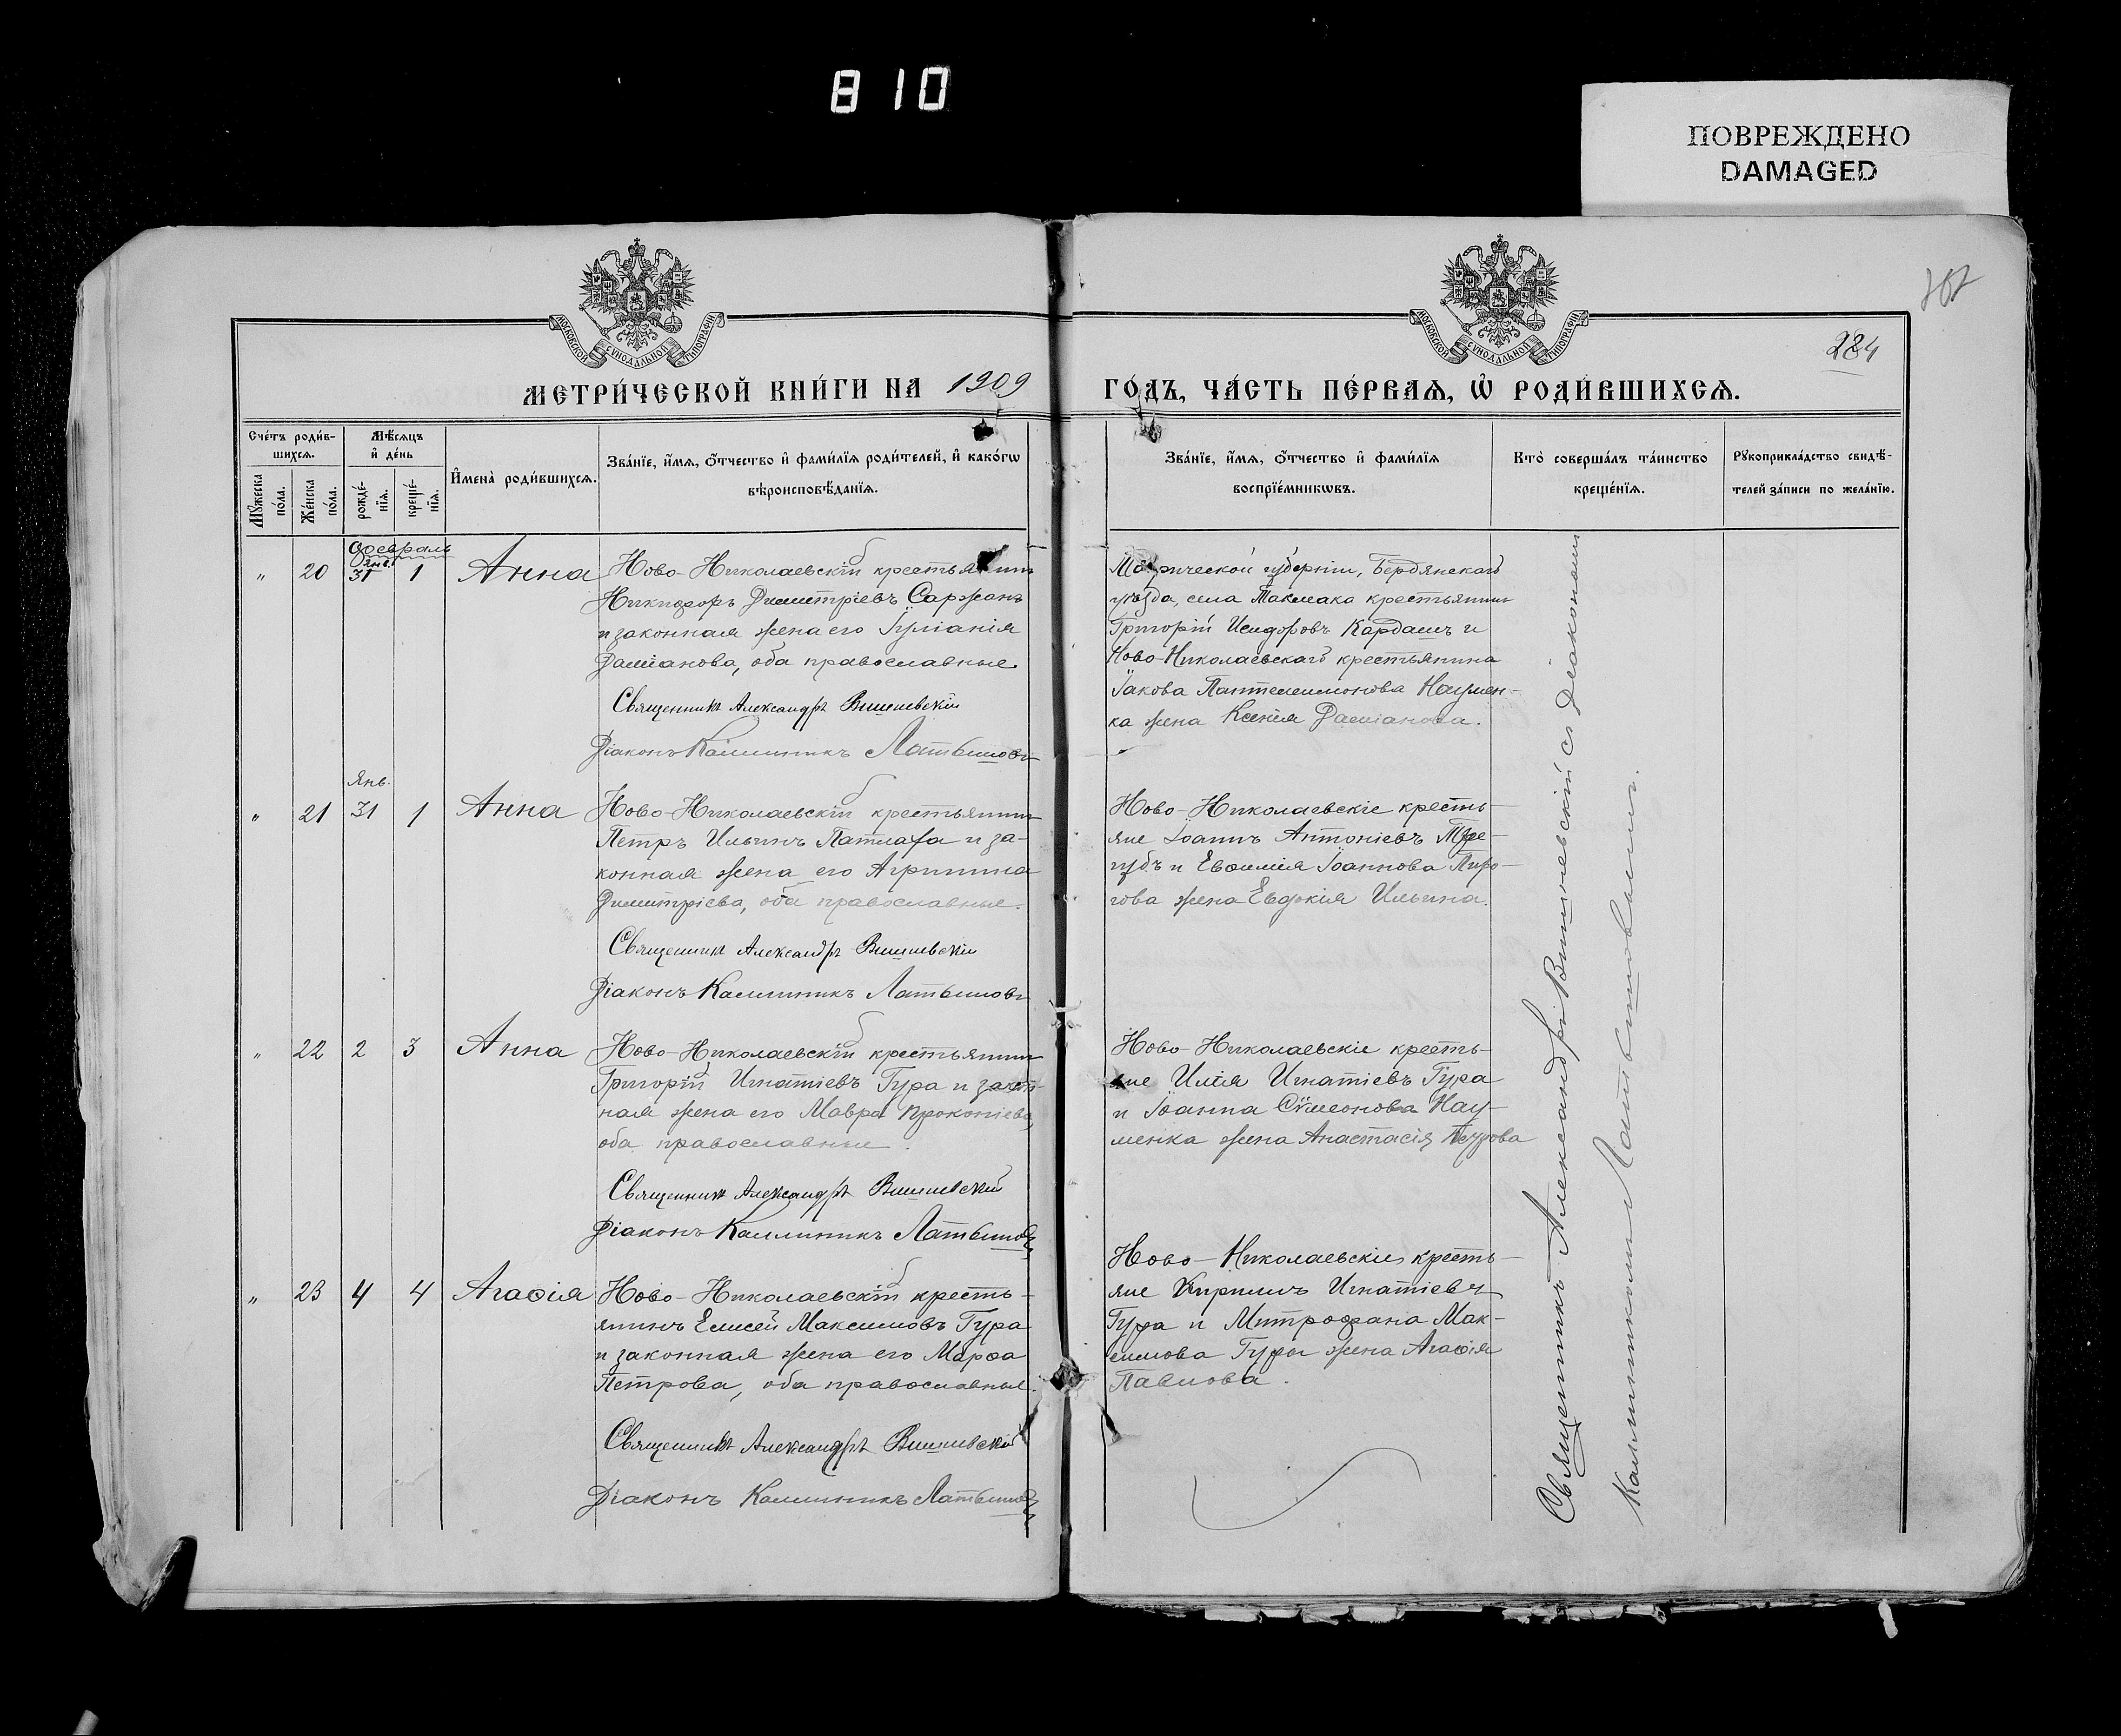 810
ПОВРЕЖДЕНО
DAMAGED
284
МОСКОВСКОЙ СѴНОДАЛЬНОЙ ТИПОГРАФІИ
МОСКОВСКОЙ СѴНОДАЛЬНОЙ ТИПОГРАФІИ
МЕТРИ́ЧЕСКОЙ КНИ́ГИ НА 1909 ГО́ДЪ, ЧА́СТЬ ПЕ́РВАѦ, Ѡ҆ РОДИ́ВШИХСѦ.
Сче́тъ роди́в-
шихсѧ.
Мꙋ́жеска по́ла.
Же́нска по́ла.
Мѣ́сѧцъ
и҆ де́нь
рожде́-
нїѧ.
креще́-
нїѧ.
И҆мена̀ роди́вшихсѧ.
Зва́нїе, и҆́мѧ, ѻ҆́тчество и҆ фами́лїѧ роди́телей, и҆ како́гѡ
вѣроисповѣ́данїѧ.
Зва́нїе, и҆́мѧ, ѻ҆́тчество и҆ фами́лїѧ
воспрїе́мникѡвъ.
Кто̀ соверша́лъ та́инство
креще́нїѧ.
Рꙋкоприкла́дство свидѣ́-
телей за́писи по жела́нїю.
Февраль
" 20 Янв. 31 1 Анна
Ново-Николаевскій крестьянинъ
Никифоръ Димитріевъ Саржанъ
и законная жена его Іуліанія
Даміанова, оба православные.
Священникъ Александръ Вишневскій
Діаконъ Каллиникъ Латышовъ
Таврической губерніи, Бердянскаго
уѣзда, села Токмака крестьянинъ
Григорій Исидоровъ Кардашъ и
Ново-Николаевскаго крестьянина
Іакова Пантелеимонова Наумен-
ка жена Ксенія Даміанова.
" 21 Янв. 31 1 Анна
Ново-Николаевскій крестьянинъ
Петръ Ильинъ Патлаха и за-
конная жена его Агриппина
Димитріева, оба православные.
Священникъ Александръ Вишневскій
Діаконъ Каллиникъ Латышовъ
Ново-Николаевскіе кресть-
яне Іоаннъ Антоніевъ Тре-
губъ и Евфимія Іоаннова Пиро-
гова жена Евдокія Ильина.
" 22 2 3 Анна
Ново-Николаевскій крестьянинъ
Григорій Игнатіевъ Гура и закон-
ная жена его Мавра Прокопіева,
оба православные.
Священникъ Александръ Вишневскій
Діаконъ Каллиникъ Латышовъ
Ново-Николаевскіе кресть-
яне Илія Игнатіевъ Гура
и Іоанна Сѵмеонова Нау-
менка жена Анастасія Петрова
" 23 4 4 Агаѳія
Ново-Николаевскій кресть-
янинъ Елисей Максимовъ Гура
и законная жена его Марѳа
Петрова, оба православные.
Священникъ Александръ Вишневскій
Діаконъ Каллиникъ Латышовъ
Ново-Николаевскіе кресть-
яне Кириллъ Игнатіевъ
Гура и Митрофана Мак-
симова Гуры жена Агаѳія
Павлова.
Священникъ Александръ Вишневскій съ Діакономъ
Каллиникомъ Латышовымъ.